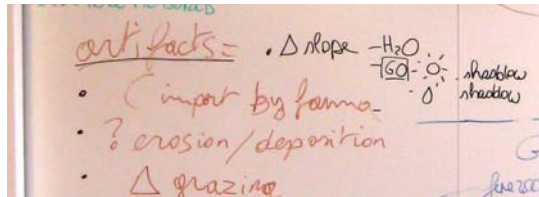 artifacts= . Δ slope -H2O
-GO - shaddow
shaddow
• ( import by farma_
• ? erosion/deposition
• Δ grazing